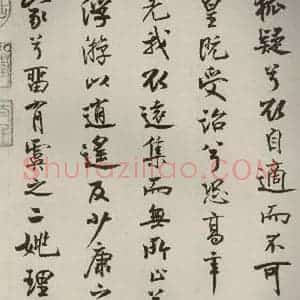 狐疑兮欲自適而不可
皇既受詒兮恐高辛
先我欲遠集而無所止兮
浮游以逍遙及少康之
家兮留有虞之二姚理
shufaziliao.com